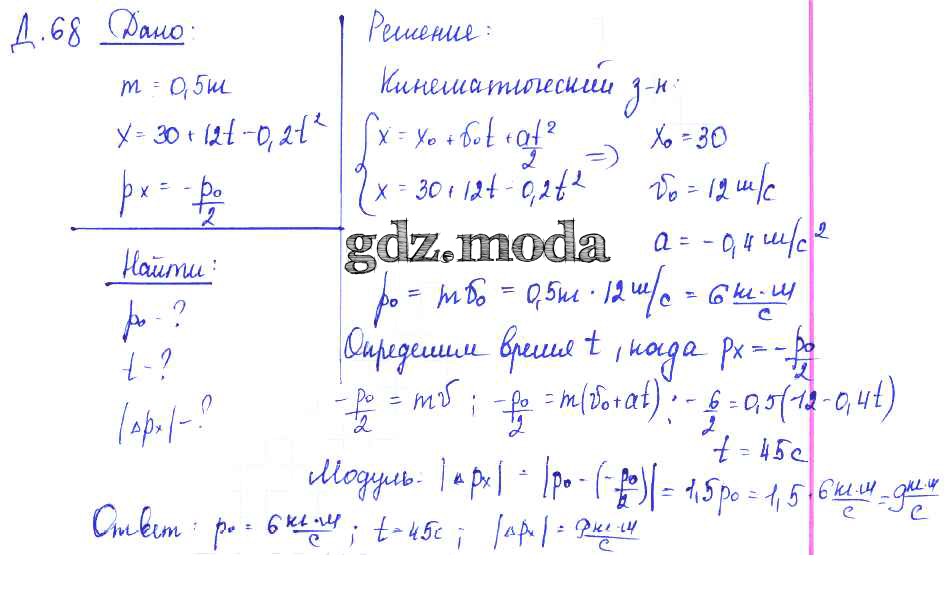 Д.68 Дано:
m = 0,5кг
x = 30 + 12t - 0,2t²
px = -p₀/2
Найти:
p₀ - ?
t - ?
|Δpx| - ?
Решение:
Кинематический з-н:
{ x = x₀ + v₀t + at²/2
x = 30 + 12t - 0,2t² =>
x₀ = 30
v₀ = 12 м/с
a = -0,4 м/с²
gdz.moda
p₀ = mv₀ = 0,5кг · 12 м/с = 6 кг·м/с
Определим время t, когда px = -p₀/2
-p₀/2 = mv ; -p₀/2 = m(v₀+at) ; -6/2 = 0,5(12-0,4t)
t = 45с
Модуль: |Δpx| = |p₀ - (-p₀/2)| = 1,5p₀ = 1,5 · 6 кг·м/с = 9 кг·м/с
Ответ: p₀ = 6 кг·м/с ; t = 45с ; |Δpx| = 9 кг·м/с